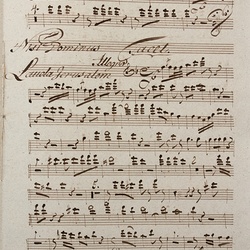 4.
Nisi Dominus Tacet.
Allegro
Lauda Jerusalem